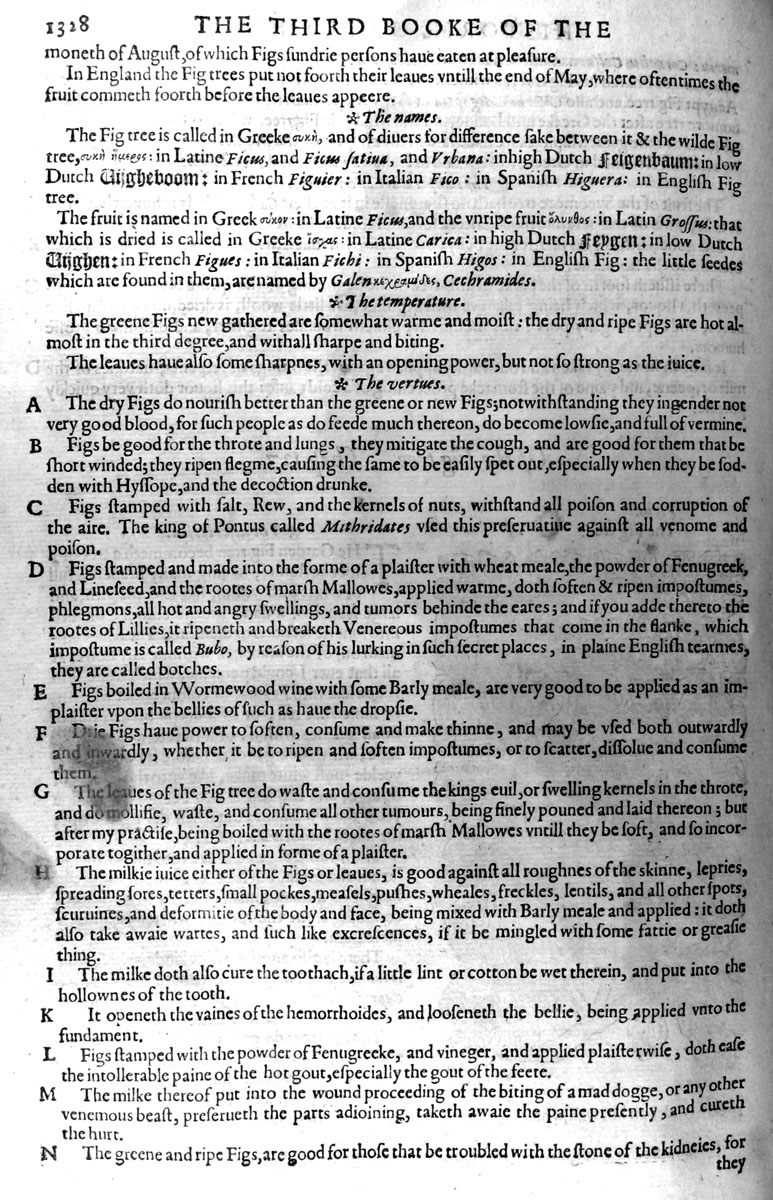 1328 THE THIRD BOOKE OF THE
moneth of Auguſt,of which Figs ſundrie perſons haue eaten at pleaſure.
In England the Fig trees put not foorth their leaues vntill the end of May,where oftentimes the
fruit commeth foorth before the leaues appeere.
✻ The names.
The Fig tree is called in Greeke συκῆ, and of diuers for difference ſake between it & the wilde Fig
tree,συκῆ ἥμερος: in Latine Ficus, and Ficus ſatiua, and Vrbana: inhigh Dutch Feigenbaum: in low
Dutch Uijgheboom: in French Figuier: in Italian Fico: in Spaniſh Higuera: in Engliſh Fig
tree.
The fruit is named in Greek σῦκον: in Latine Ficus,and the vnripe fruit ὄλυνθος: in Latin Groſſus: that
which is dried is called in Greeke ἰσχας: in Latine Carica: in high Dutch Feygen: in low Dutch
Uijghen: in French Figues: in Italian Fichi: in Spaniſh Higos: in Engliſh Fig: the little ſeedes
which are found in them, are named by Galen κεχραμίδες, Cechramides.
✻ The temperature.
The greene Figs new gathered are ſomewhat warme and moiſt: the dry and ripe Figs are hot al-
moſt in the third degree,and withall ſharpe and biting.
The leaues haue alſo ſome ſharpnes, with an opening power, but not ſo ſtrong as the iuice.
✻ The vertues.
A The dry Figs do nouriſh better than the greene or new Figs;notwithſtanding they ingender not
very good blood, for ſuch people as do feede much thereon, do become lowſie,and full of vermine.
B Figs be good for the throte and lungs, they mitigate the cough, and are good for them that be
ſhort winded; they ripen flegme,cauſing the ſame to be eaſily ſpet out,eſpecially when they be ſod-
den with Hyſſope,and the decoction drunke.
C Figs ſtamped with ſalt, Rew, and the kernels of nuts, withſtand all poiſon and corruption of
the aire. The king of Pontus called Mithridates vſed this preſeruatiue againſt all venome and
poiſon.
D Figs ſtamped and made into the forme of a plaiſter with wheat meale,the powder of Fenugreek,
and Lineſeed,and the rootes of marſh Mallowes,applied warme, doth ſoften & ripen impoſtumes,
phlegmons,all hot and angry ſwellings, and tumors behinde the eares; and if you adde thereto the
rootes of Lillies,it ripeneth and breaketh Venereous impoſtumes that come in the flanke, which
impoſtume is called Bubo, by reaſon of his lurking in ſuch ſecret places, in plaine Engliſh tearmes,
they are called botches.
E Figs boiled in Wormewood wine with ſome Barly meale, are very good to be applied as an im-
plaiſter vpon the bellies of ſuch as haue the dropſie.
F Drie Figs haue power to ſoften, conſume and make thinne, and may be vſed both outwardly
and inwardly, whether it be to ripen and ſoften impoſtumes, or to ſcatter,diſſolue and conſume
them.
G The leaues of the Fig tree do waſte and conſume the kings euil,or ſwelling kernels in the throte,
and do mollifie, waſte, and conſume all other tumours, being finely pouned and laid thereon; but
after my practiſe,being boiled with the rootes of marſh Mallowes vntill they be ſoft, and ſo incor-
porate togither,and applied in forme of a plaiſter.
H The milkie iuice either of the Figs or leaues, is good againſt all roughnes of the skinne, lepries,
ſpreading ſores,tetters,ſmall pockes,meaſels,puſhes,wheales, freckles, lentils, and all other ſpots,
ſcuruines,and deformitie of the body and face, being mixed with Barly meale and applied: it doth
alſo take awaie wartes, and ſuch like excreſcences, if it be mingled with ſome fattie or greaſie
thing.
I The milke doth alſo cure the toothach,if a little lint or cotton be wet therein, and put into the
hollownes of the tooth.
K It openeth the vaines of the hemorrhoides, and looſeneth the bellie, being applied vnto the
fundament.
L Figs ſtamped with the powder of Fenugreeke, and vineger, and applied plaiſterwiſe, doth eaſe
the intollerable paine of the hot gout,eſpecially the gout of the feete.
M The milke thereof put into the wound proceeding of the biting of a mad dogge, or any other
venemous beaſt, preſerueth the parts adioining, taketh awaie the paine preſently, and cureth
the hurt.
N The greene and ripe Figs,are good for thoſe that be troubled with the ſtone of the kidneies, for
they